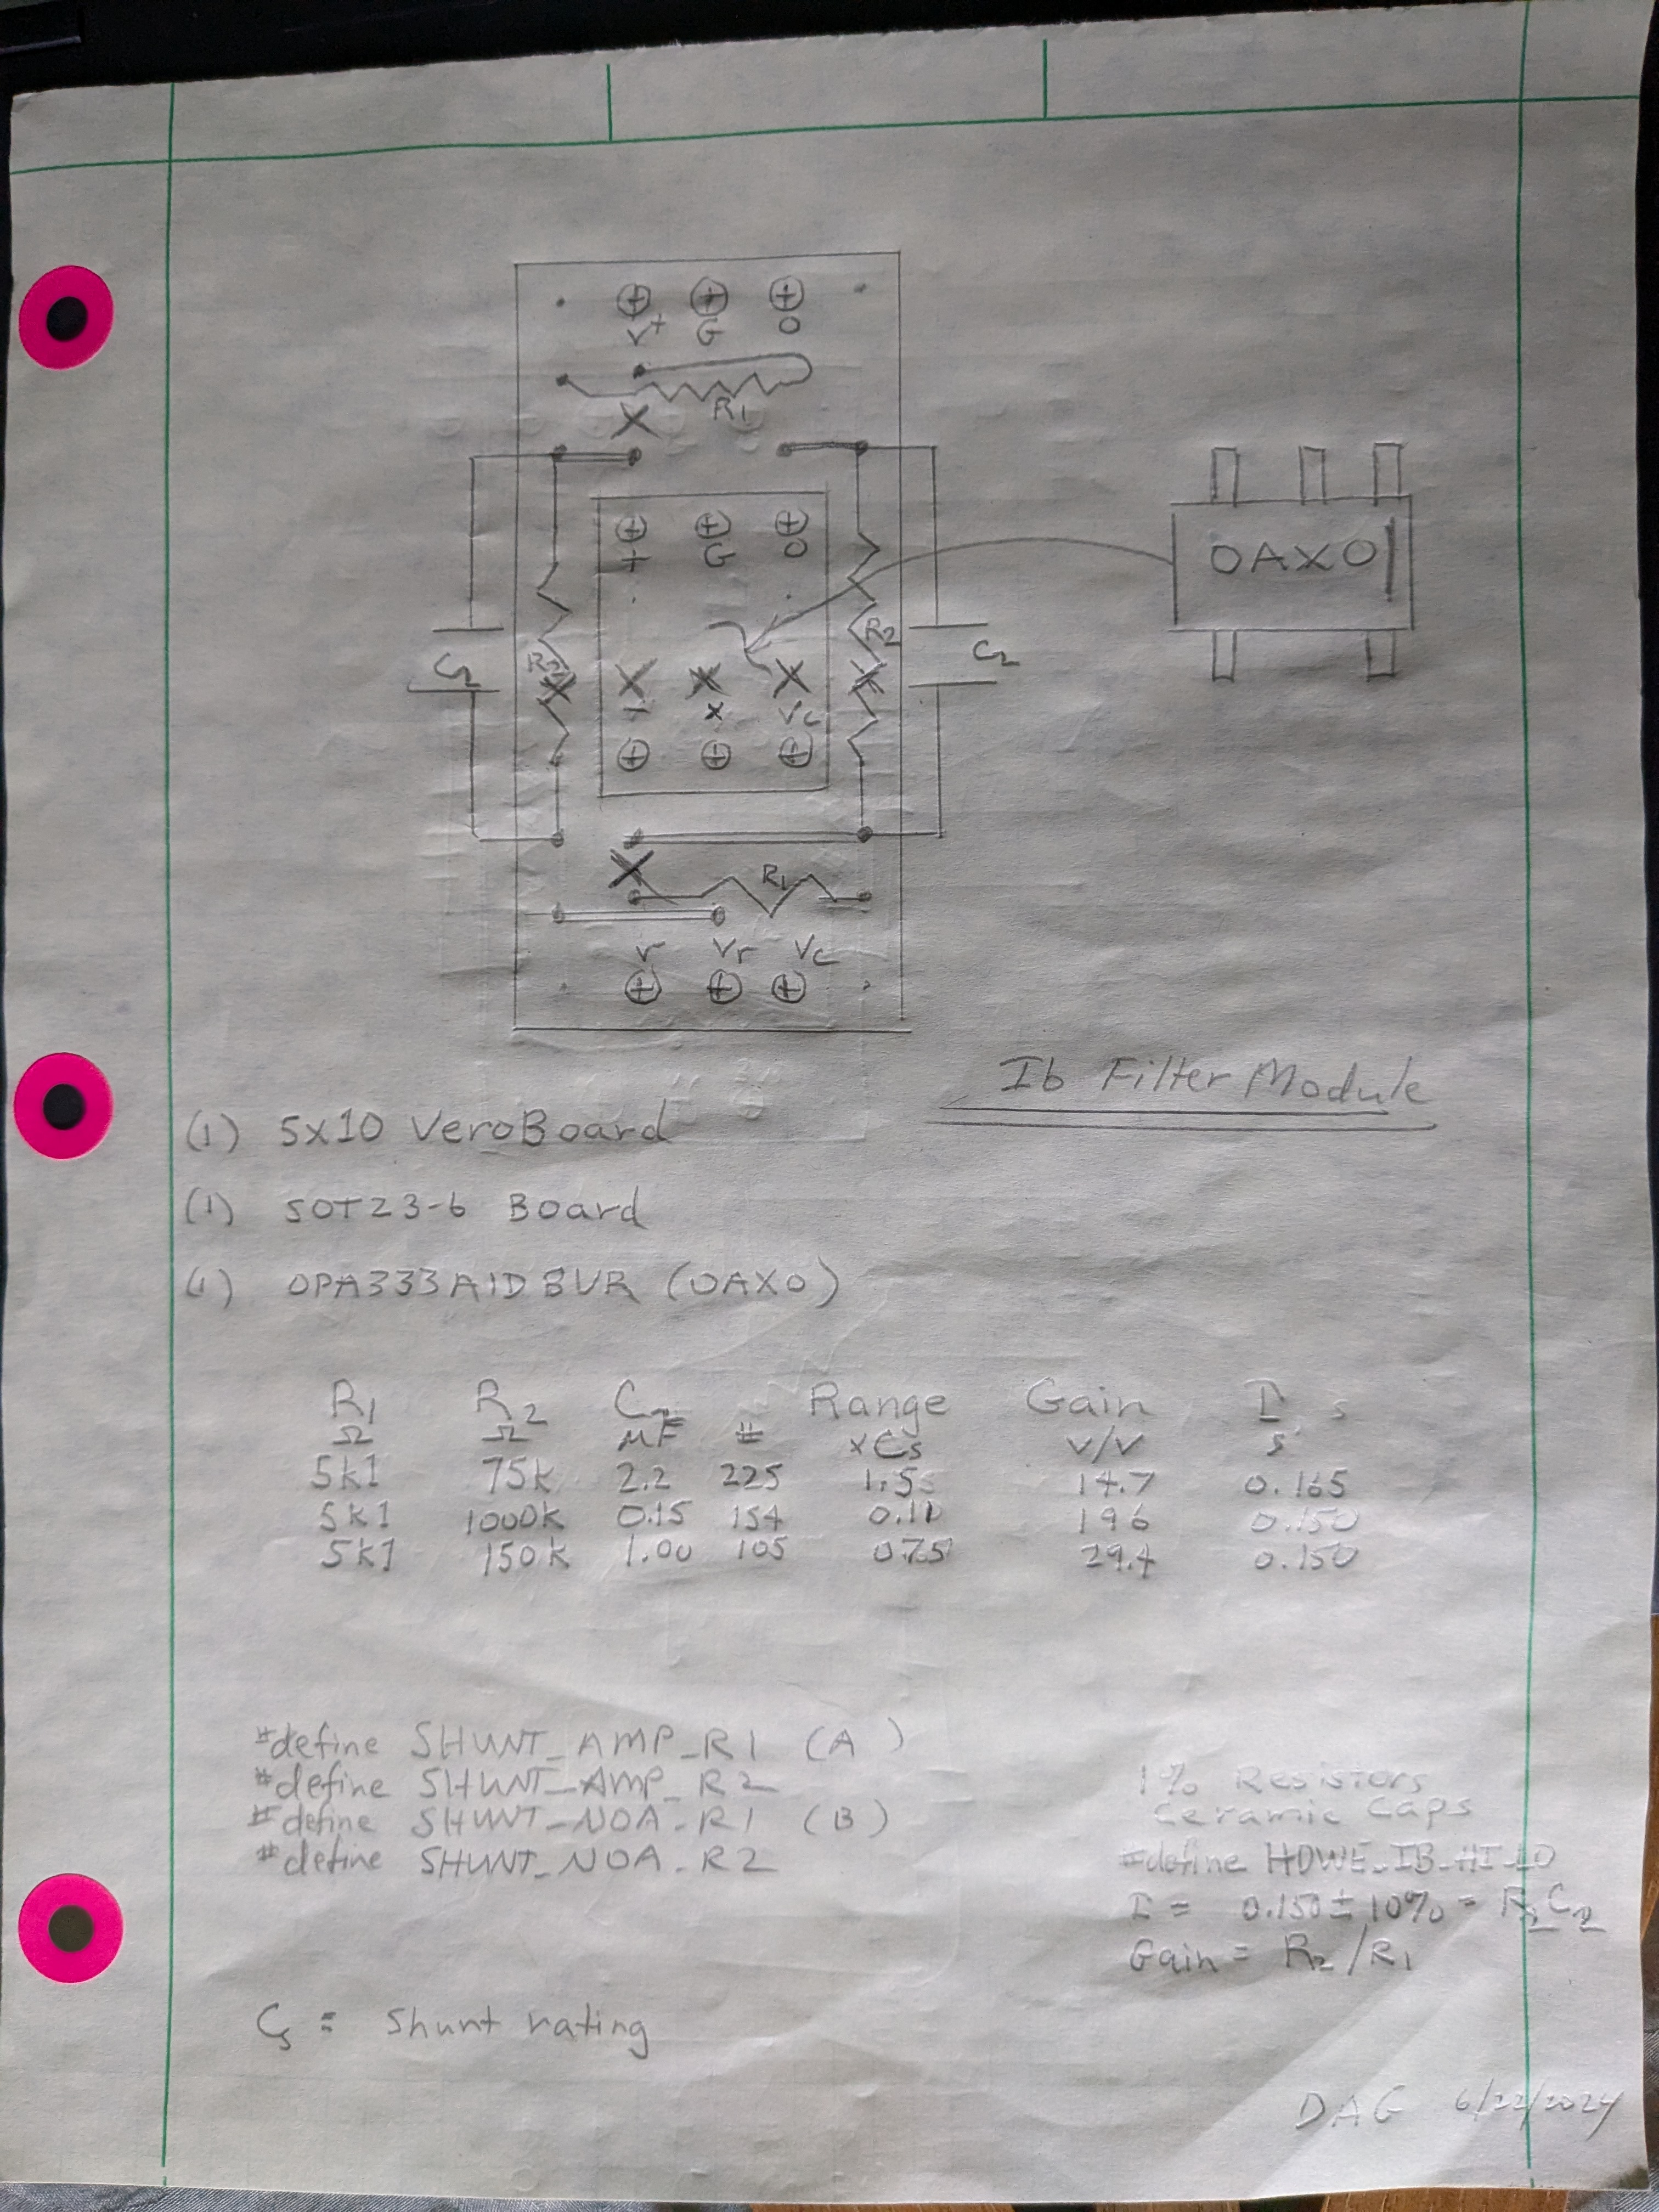 V+ G O
R1
X
+ G O
OAXO
R2 R2
C2 C2
X X X X X
- x Vc
X
R1
V Vr Vc
Ib Filter Module
(1) 5x10 VeroBoard
(1) SOT23-6 Board
(1) OPA333AIDBVR (OAXO)
R1 R2 C2 # Range Gain
Ω Ω µF xCs V/V s
5k1 75k 2.2 225 1.5 14.7 0.165
5k1 1000k 0.15 154 0.11 196 0.150
5k1 150k 1.00 105 0.75 29.4 0.150
#define SHUNT_AMP_R1 (A)
#define SHUNT_AMP_R2
#define SHUNT_NOA_R1 (B)
#define SHUNT_NOA_R2
1% Resistors
Ceramic Caps
#define HDWE_IB_HI_LO
= 0.150 ± 10% = R2C2
Gain = R2/R1
Cs = Shunt rating
DAG 6/22/2024